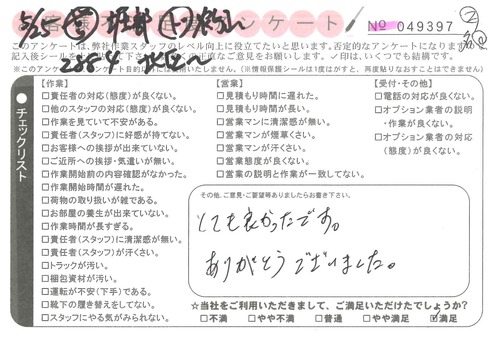 アンケート
№ 049397
このアンケートは、弊社作業スタッフのレベル向上に役立てたいと思います。否定的なアンケートになりますが、
記入後シールを
ご意見をお願いします。✓印は、いくつでも結構です。
【作業】
□責任者の対応(態度)が良くない。
□他のスタッフの対応(態度)が良くない。
□作業を見ていて不安がある。
□責任者(スタッフ)に好感が持てない。
□お客様への挨拶が出来ていない。
□ご近所への挨拶・気遣いが無い。
□作業開始前の内容確認がなかった。
□作業開始時間が遅れた。
□荷物の取り扱いが雑である。
□お部屋の養生が出来ていない。
□作業時間が長すぎる。
□責任者(スタッフ)に清潔感が無い。
□責任者(スタッフ)が汗くさい。
□トラックが汚い。
□梱包資材が汚い。
□運転が不安(下手)である。
□靴下の履き替えをしてない。
□スタッフにやる気がみられない。
【営業】
□見積もり時間に遅れた。
□見積もり時間が長い。
□営業マンに清潔感が無い。
□営業マンが煙草くさい。
□営業マンが汗くさい。
□営業態度が良くない。
□営業の説明と作業が一致してない。
【受付・その他】
□電話の対応が良くない。
□オプション業者の説明
・作業が良くない。
□オプション業者の対応
(態度)が良くない。
チェックリスト
その他、ご意見・ご要望等ありましたらお書き下さい。
とても良かったです。
ありがとうございました。
☆当社をご利用いただきまして、ご満足いただけたでしょうか?
□不満 □やや不満 □普通 □やや満足 ☑満足